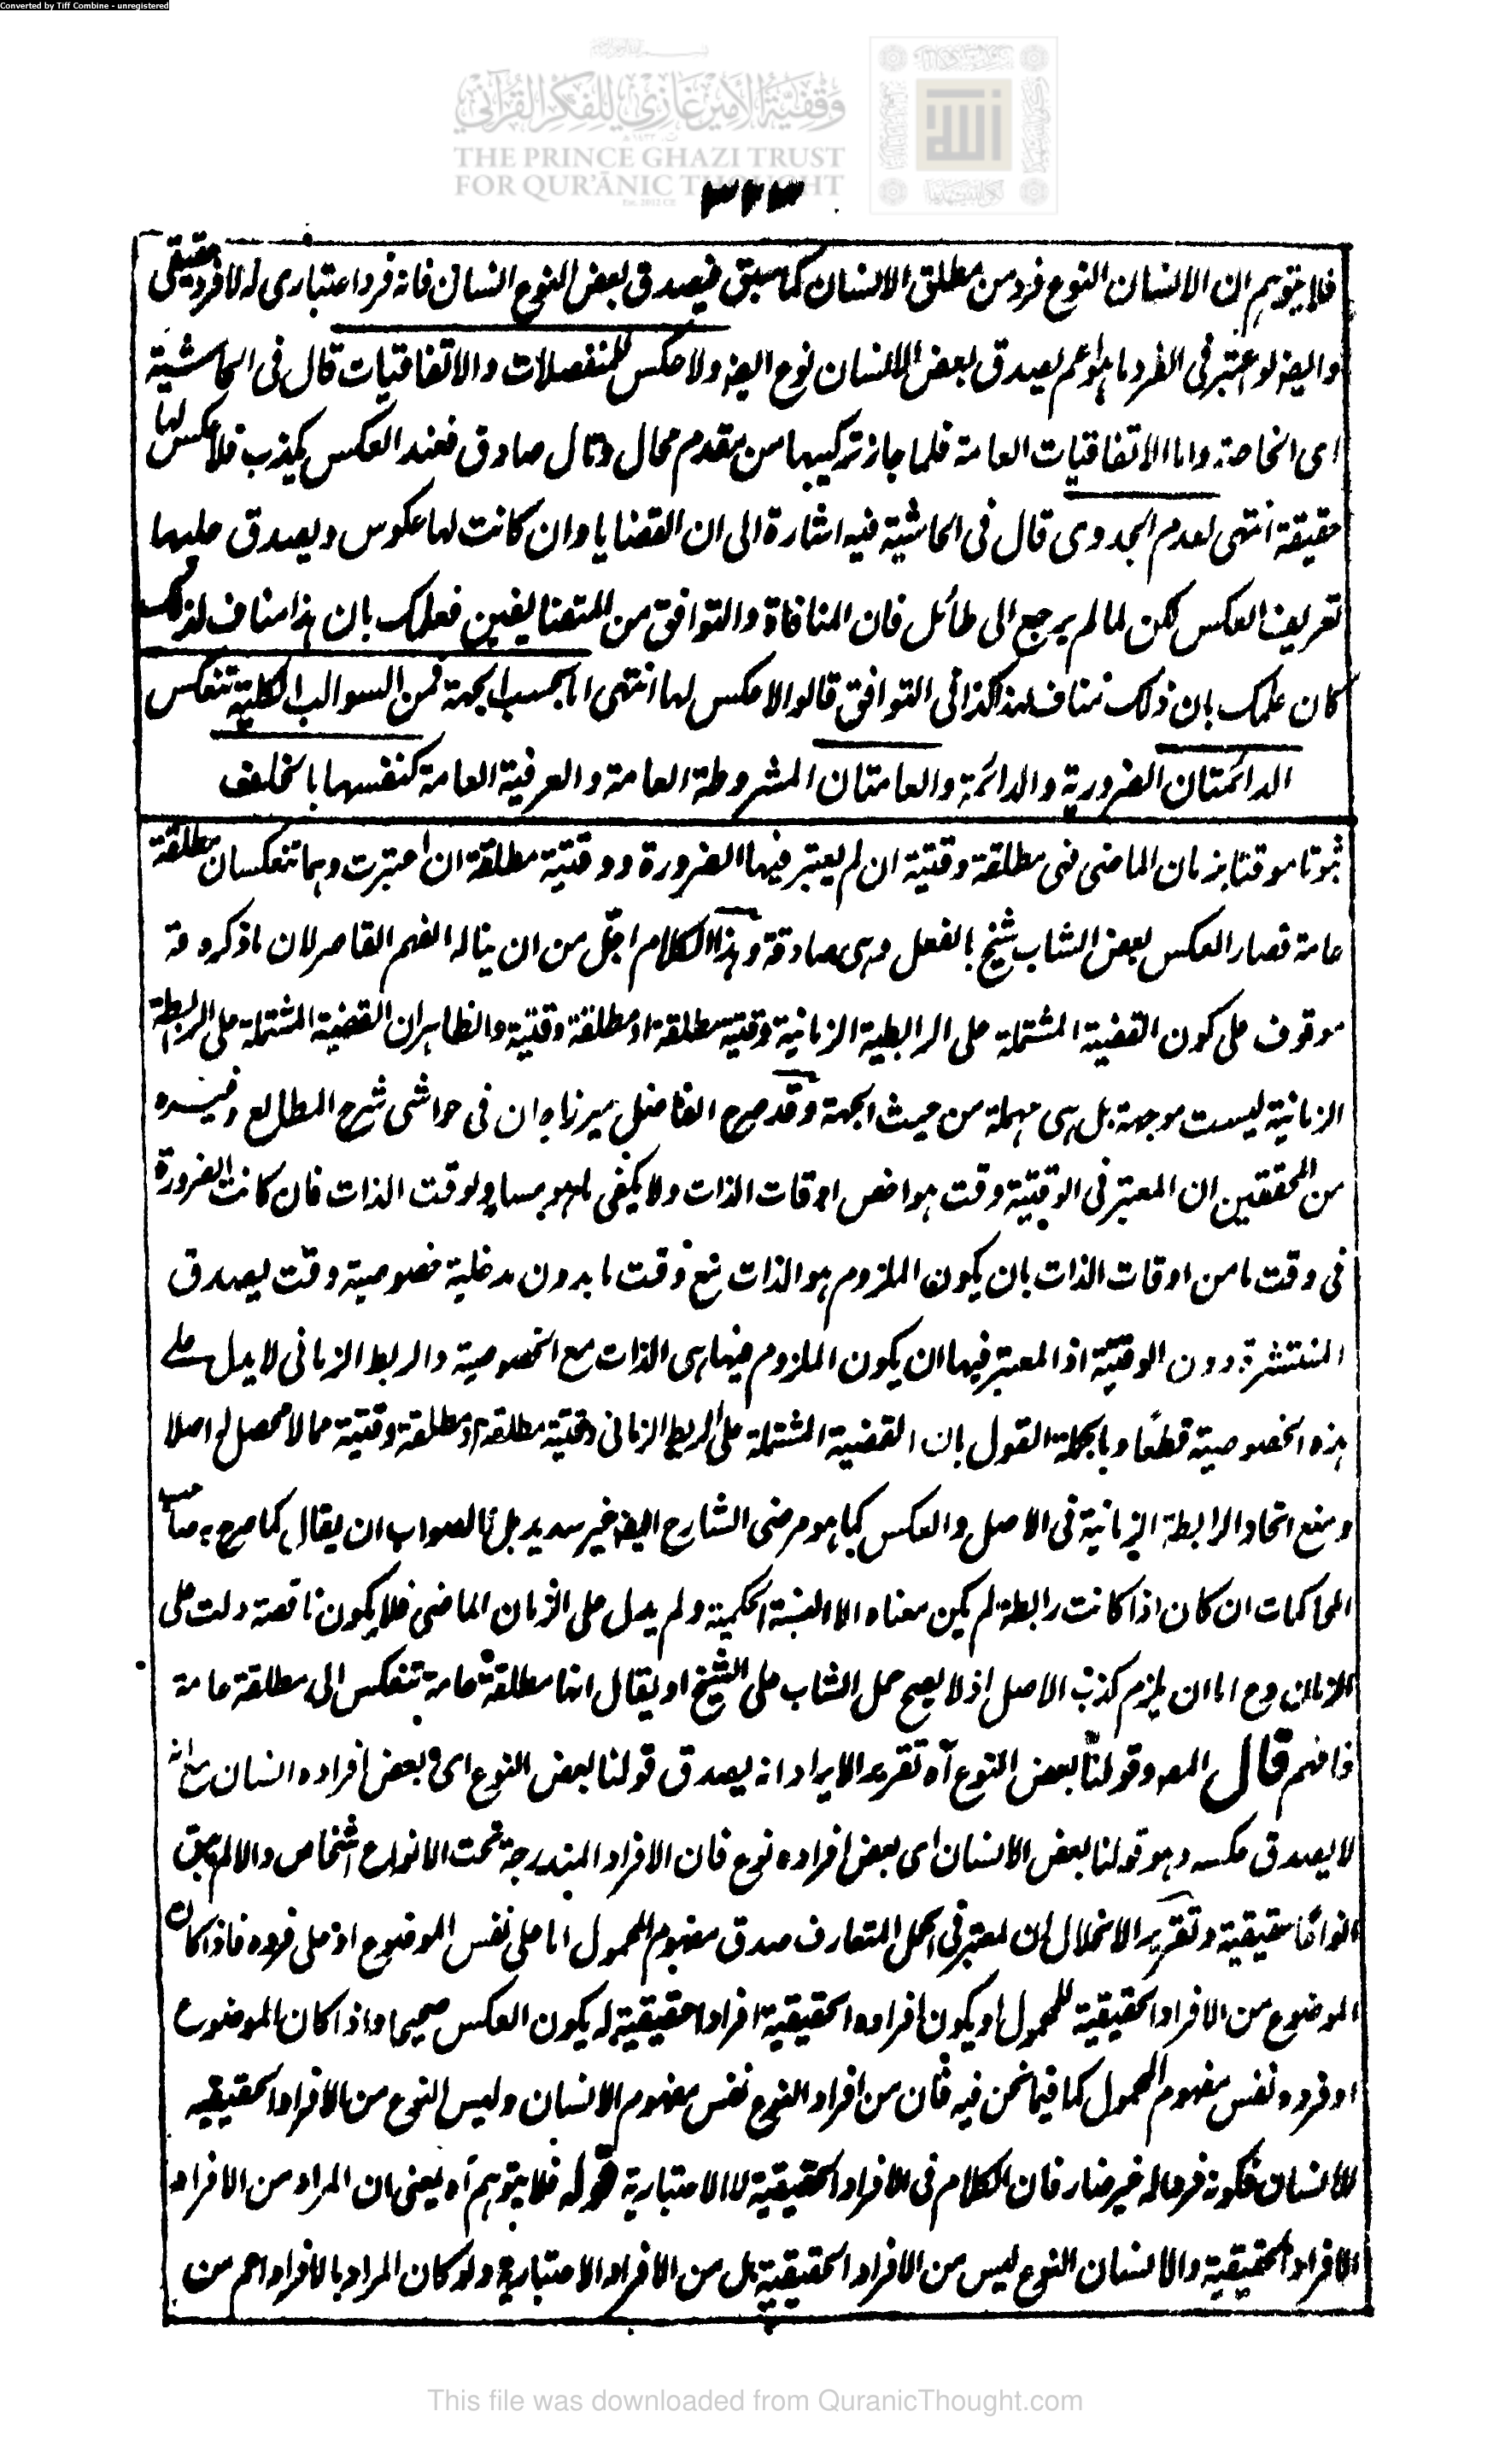 Converted by Tiff Combine - unregistered
وقفية الأمير غازي للفكر القرآني
THE PRINCE GHAZI TRUST
FOR QUR'ĀNIC THOUGHT
٣٢٣
فلا يتوهم ان الانسان النوع فرد من مطلق الانسان كما سبق فيصدق بعض النوع انسان فانه فرد اعتباري له لا فرد حقيقي
وايضه لو اعتبر في الفرد ما هو اعم لصدق بعض الانسان نوع ايضه ولا عكس للمنفصلات والاتفاقيات قال في الحاشية
اى الخاصة واما الاتفاقيات العامة فلما جاز تركيبها من مقدم محال وتال صادق فعند العكس يكذب فلا عكس لها
حقيقة انتهى لعدم الجدوى قال في الحاشية فيه اشارة الى ان القضايا وان كانت لها عكوس ويصدق عليها
تعريف العكس لكن لما لم يرجع الى طائل فان المنافاة والتوافق من المتضايفين فعلمك بان هذا مناف لذلك
كان علمك بان ذلك مناف لهذا كذا في التوافق قالوا لا عكس لها انتهى اما بحسب الجهة فمن السوالب الكلية تنعكس
الدائمتان الضرورية والدائمة والعامتان المشروطة العامة والعرفية العامة كنفسها بالخلف
ثبوتا موقتا بزمان الماضى فهى مطلقة وقتية ان لم يعتبر فيها الضرورة ووقتية مطلقة ان اعتبرت وهما تنعكسان مطلقة
عامة فصار العكس بعض الشاب شيخ بالفعل وهى صادقة وهذا الكلام اجل من ان يناله الفهم القاصر لان ما ذكره
موقوف على كون القضية المشتملة على الرابطة الزمانية وقتية مطلقة او مطلقة وقتية والظاهر ان القضية المشتملة على الرابطة
الزمانية ليست موجهة بل هى مهملة من حيث الجهة وقد صرح الفاضل ميرزاجان في حواشى شرح المطالع وغيره
من المحققين ان المعتبر في الوقتية وقت هو اخص اوقات الذات ولا يكفى ما هو مساو لوقت الذات فان كانت الضرورة
في وقت ما من اوقات الذات بان يكون الملزوم هو الذات مع وقت ما بدون مدخلية خصوصية وقت يصدق
المنتشرة دون الوقتية اذ المعتبر فيها ان يكون الملزوم فيها هى الذات مع الخصوصية والربط الزمانى لا يدل على
هذه الخصوصية قطعا وبالجملة القول بان القضية المشتملة على الربط الزمانى وقتية مطلقة او مطلقة وقتية مما لا محصل له اصلا
ومنع اتحاد الرابطة الزمانية في الاصل والعكس كما هو مرضى الشارح ايضه غير سديد بل الصواب ان يقال كما صرح به صاحب
المحاكمات ان كان اذا كانت رابطة لم يكن معناه الا النسبة الحكمية ولم يدل على الزمان الماضى فلا يكون ناقصة دلت على
الزمان وح اما ان يلزم كذب الاصل اذ لا يصح حمل الشاب على الشيخ او يقال انها مطلقة عامة تنعكس الى مطلقة عامة
فافهم قال المصـ وقولنا بعض النوع آه تقرير الايراد انه يصدق قولنا بعض النوع اى بعض افراده انسان مع انه
لا يصدق عكسه وهو قولنا بعض الانسان اى بعض افراده نوع فان الافراد المندرجة تحت الانواع اشخاص والا لم يبق
انواعًا حقيقية وتقرير الانحلال ان المعتبر في الحمل المتعارف صدق مفهوم المحمول اما على نفس الموضوع او على فرده فاذا كان
الموضوع من الافراد الحقيقية للمحمول او يكون افراده الحقيقية افرادا حقيقية له يكون العكس صحيحا واذا كان الموضوع
او فرده نفس مفهوم المحمول كما فيما نحن فيه فان من افراد النوع نفس مفهوم الانسان وليس النوع من الافراد الحقيقيه
للانسان فكونه فرعا له غير ضار فان الكلام في الافراد الحقيقية لا الاعتبارية قوله فلا يتوهم آه يعنى ان المراد من الافراد
الافراد الحقيقية والانسان النوع ليس من الافراد الحقيقية بل من الافراد الاعتبارية ولو كان المراد بالافراد اعم من
This file was downloaded from QuranicThought.com